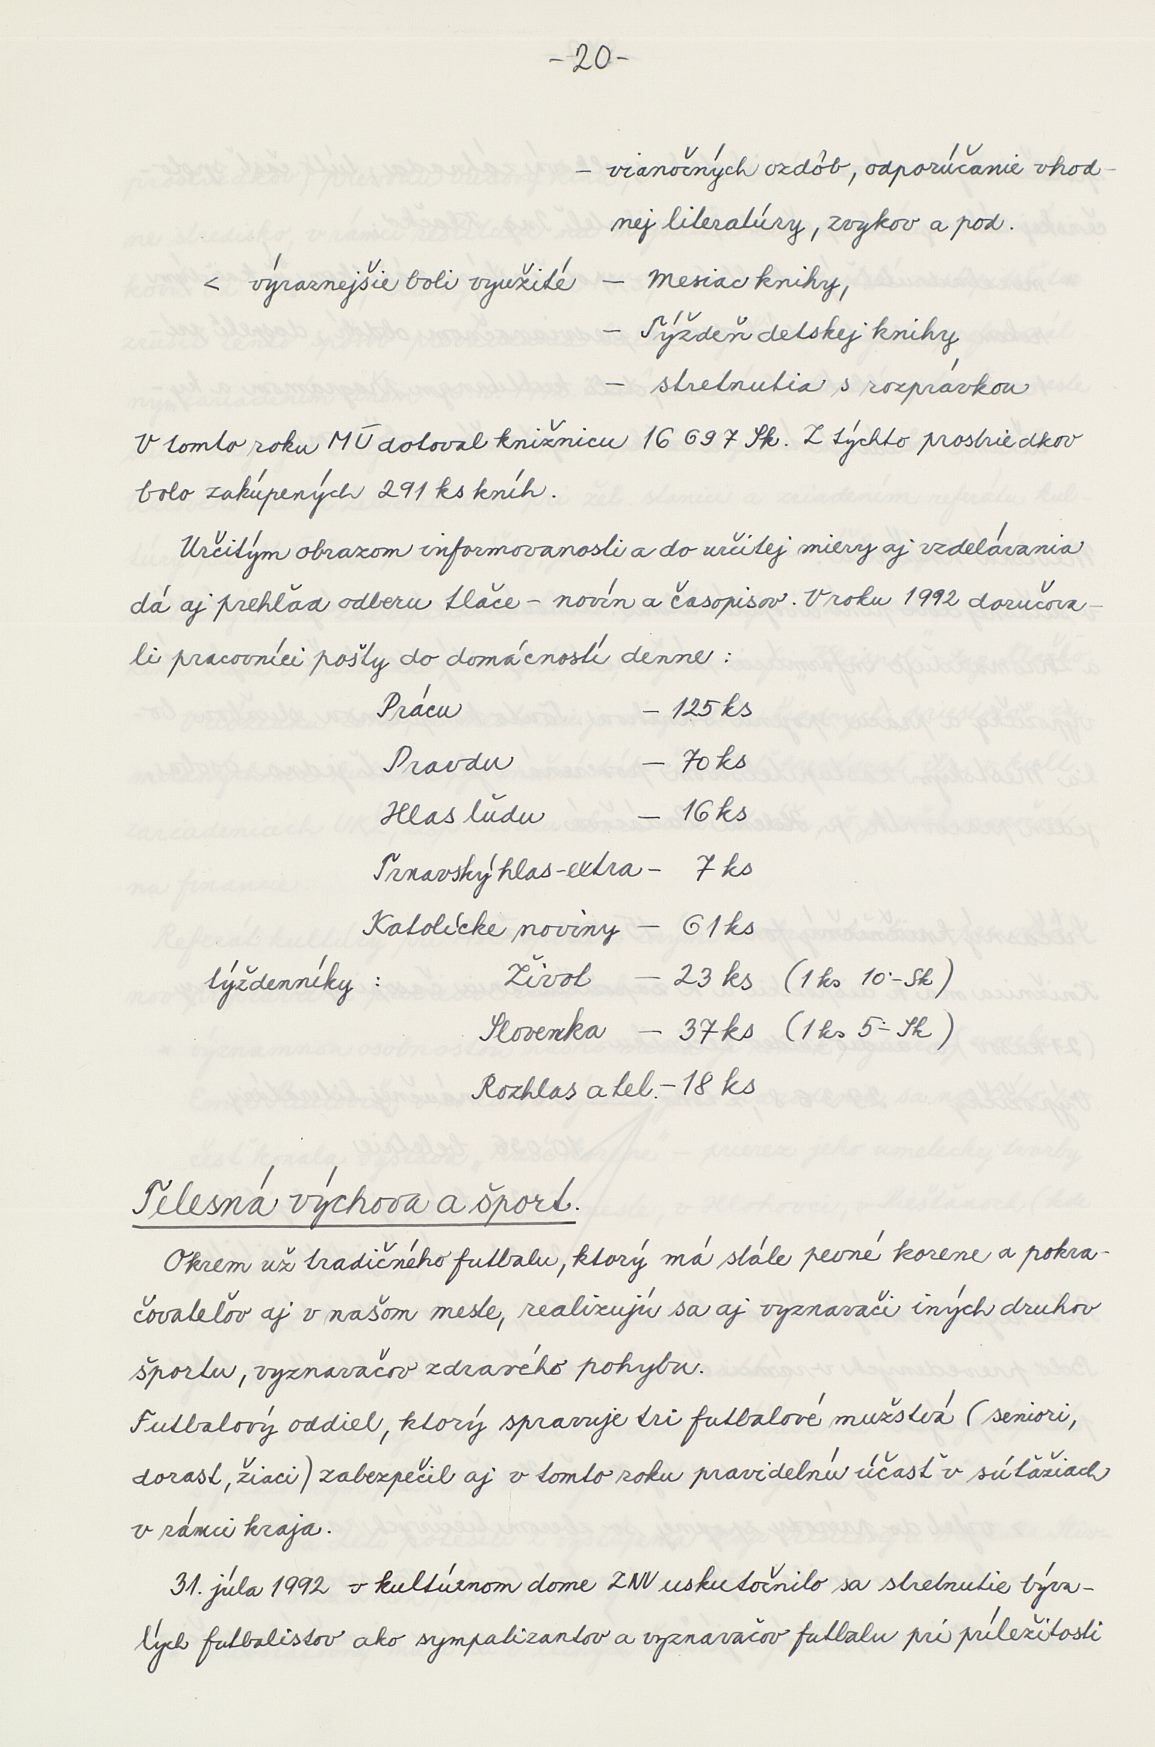 -20-
- vianočných ozdôb, odporúčanie vhod-
nej literatúry, zvykov a pod.
< výraznejšie boli využité - Mesiac knihy,
- Týždeň detskej knihy
- stretnutia s rozprávkou
V tomto roku MÚ dotoval knižnicu 16 697 Sk. Z týchto prostriedkov
bolo zakúpených 291 ks kníh.
Určitým obrazom informovanosti a do určitej miery aj vzdelávania
dá aj prehľad odberu tlače - novín a časopisov. V roku 1992 doručova-
li pracovníci pošty do domácností denne :
Prácu - 125 ks
Pravdu - 70 ks
Hlas ľudu - 16 ks
Trnavský hlas-extra - 7 ks
Katolícke noviny - 61 ks
týždenníky : Život - 23 ks (1 ks 10.- Sk)
Slovenka - 37 ks (1 ks 5.- Sk)
Rozhlas a tel. - 18 ks
Telesná výchova a šport.
Okrem už tradičného futbalu, ktorý má stále pevné korene a pokra-
čovateľov aj v našom meste, realizujú sa aj vyznavači iných druhov
športu, vyznavačov zdravého pohybu.
Futbalový oddiel, ktorý spravuje tri futbalové mužstvá (seniori,
dorast, žiaci) zabezpečil aj v tomto roku pravidelnú účasť v súťažiach
v rámci kraja.
31. júla 1992 v kultúrnom dome ZNV uskutočnilo sa stretnutie býva-
lých futbalistov ako sympatizantov a vyznavačov futbalu pri príležitosti